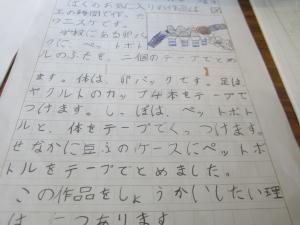 ぼくのお気に入りの作品は、図
工の時間で作った
ウニスケです。
学校にある卵パッ
クに、ペットボト
ルのふたを、二個のテープでとめ
ます。体は、卵パックです。足は
ヤクルトのカップ4本をテープで
つけます。しっぽは、ペットボト
ルと、体をテープでくっつけます。
せなかに豆ふのケースにペットボ
トルをテープでとめました。
この作品をしょうかいしたい理
は、二つあります